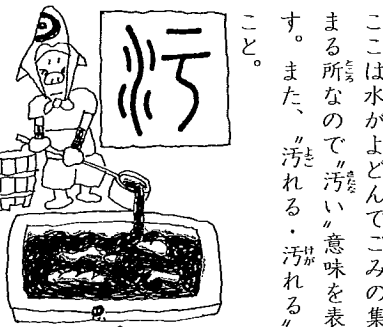 ここは水がよどんでごみの集
まる所なので〝汚い〟意味を表
す。また、〝汚れる・汚れる〟
こと。
汚